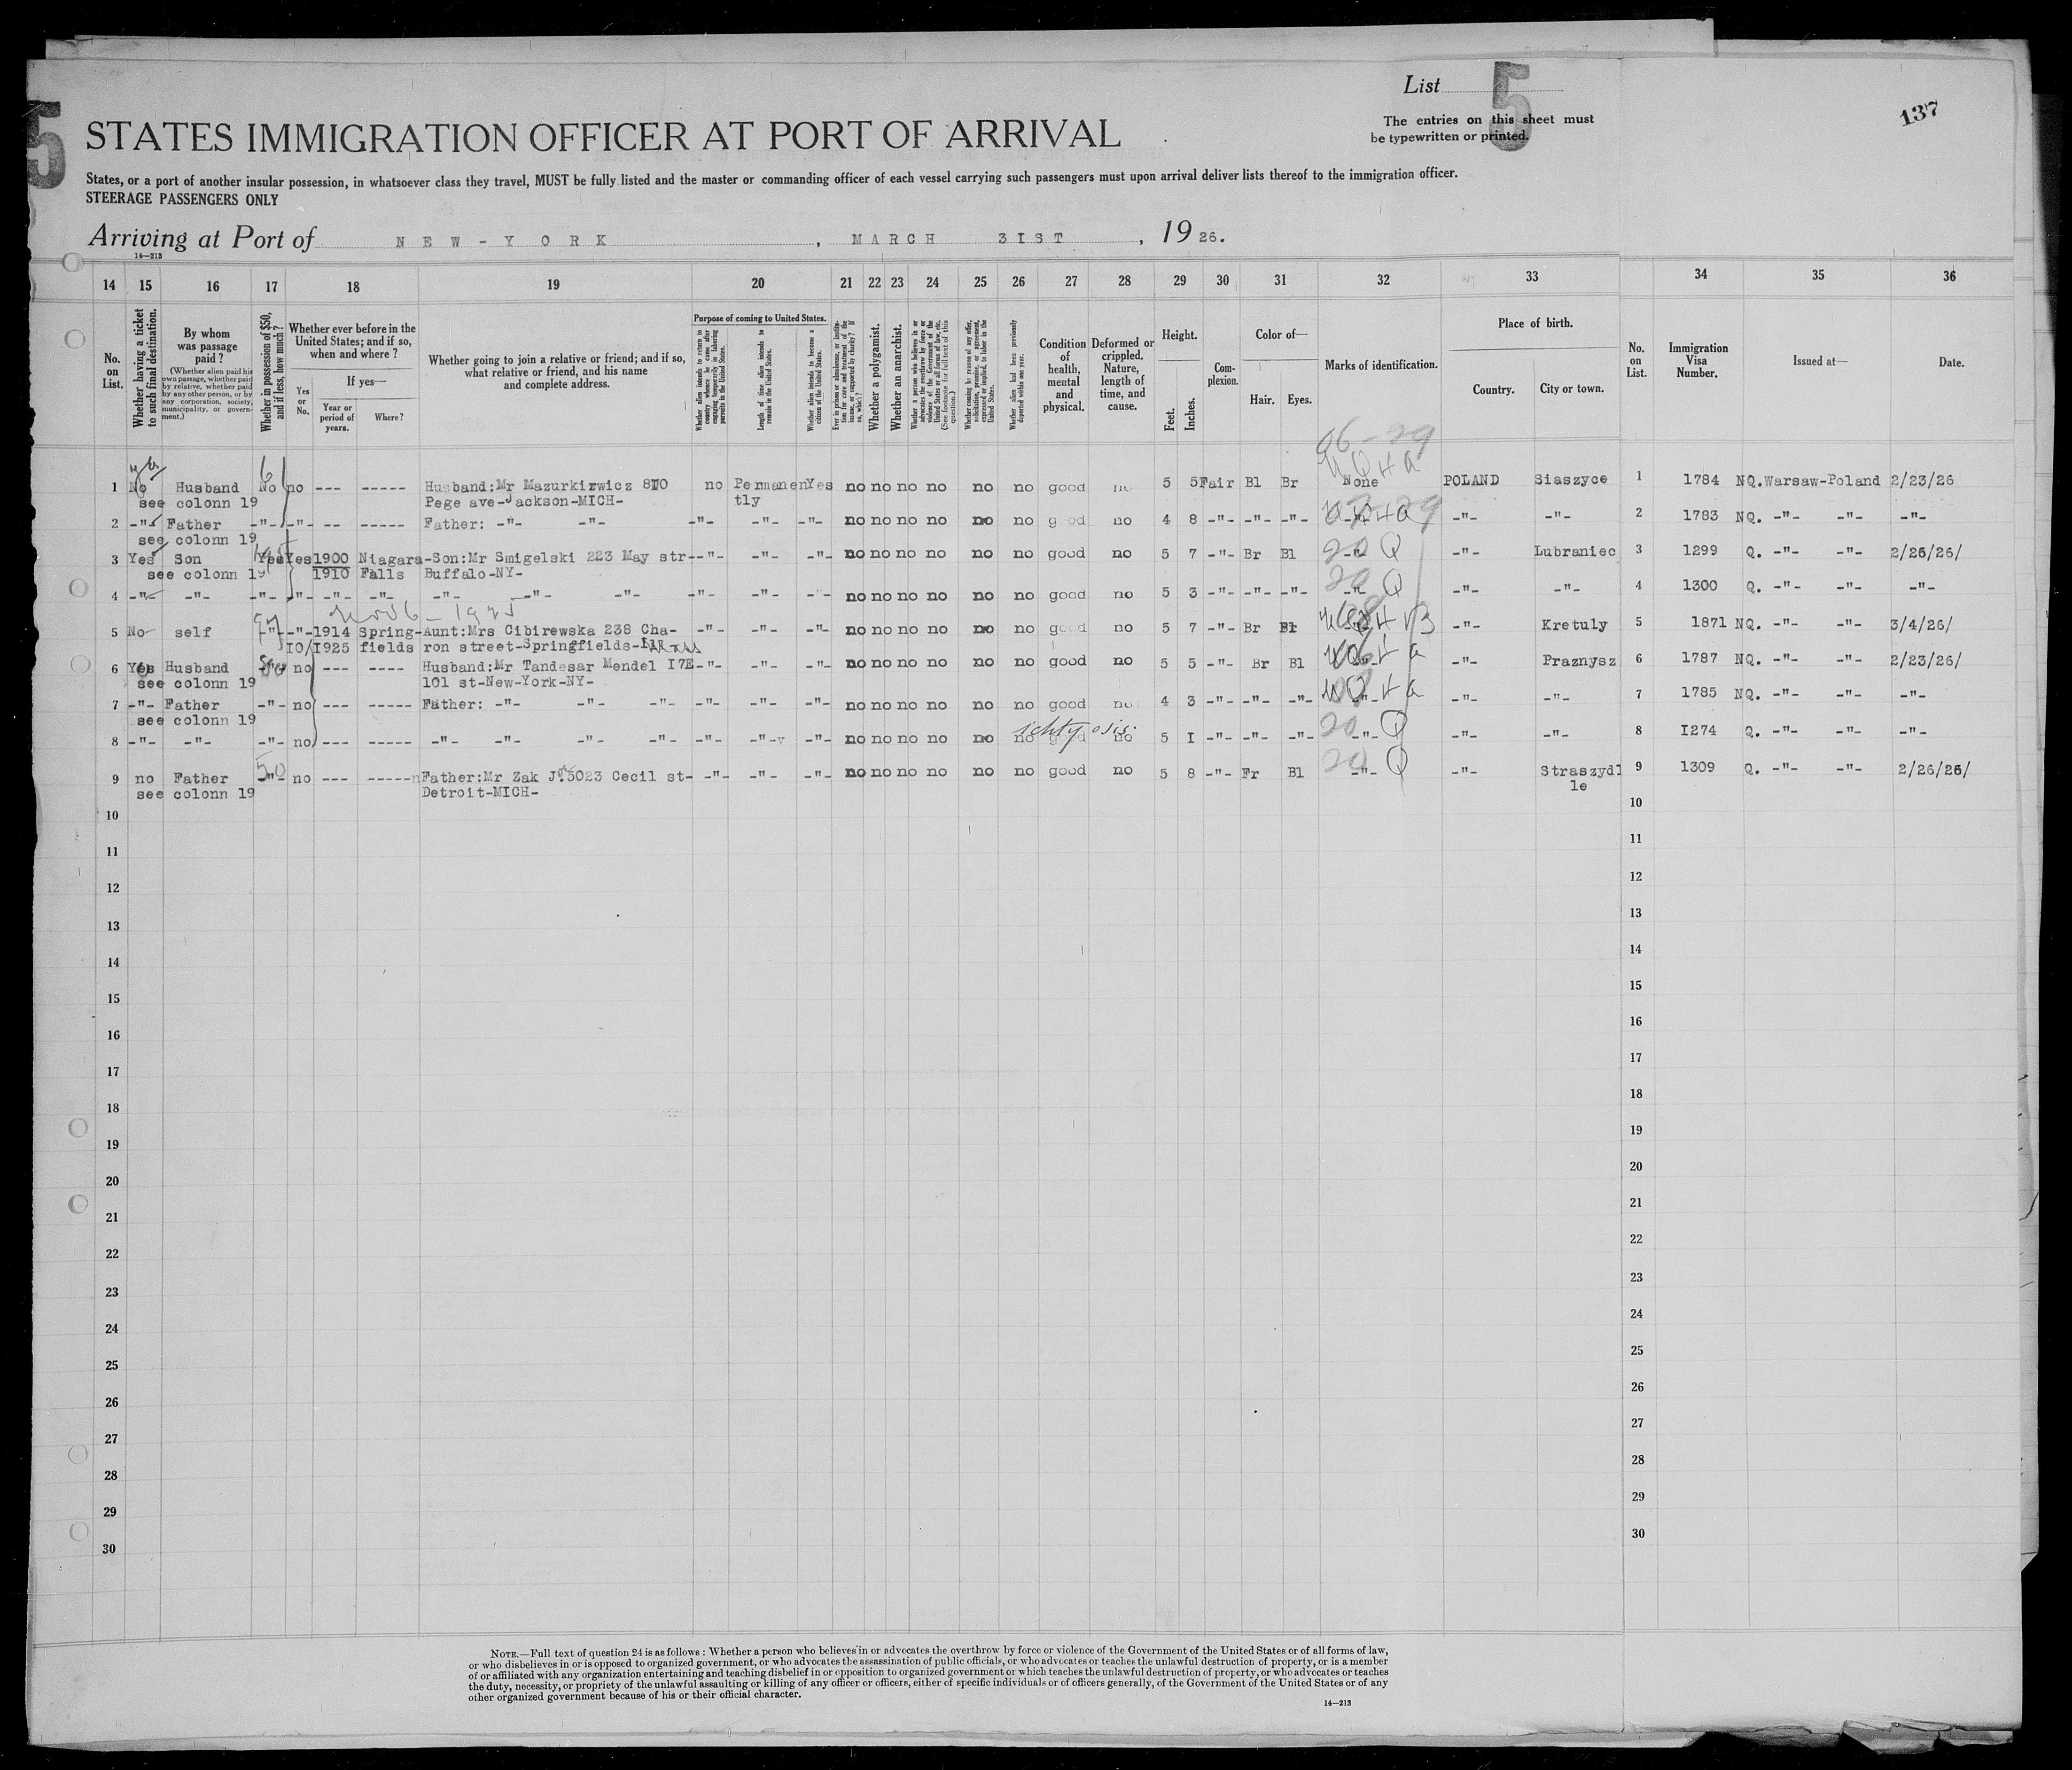 List 5
137
5
STATES IMMIGRATION OFFICER AT PORT OF ARRIVAL
The entries on this sheet must
be typewritten or printed.
States, or a port of another insular possession, in whatsoever class they travel, MUST be fully listed and the master or commanding officer of each vessel carrying such passengers must upon arrival deliver lists thereof to the immigration officer.
STEERAGE PASSENGERS ONLY
Arriving at Port of NEW-YORK, MARCH 31ST, 1926.
14—213
14 15 16 17 18 19 20 21 22 23 24 25 26 27 28 29 30 31 32 33 34 35 36
No. on List.
Whether having a ticket to such final destination.
By whom was passage paid?
(Whether alien paid his own passage, whether paid by relative, whether paid by any other person, or by any corporation, society, municipality, or government.)
Whether in possession of $50, and if less, how much?
Whether ever before in the United States; and if so, when and where?
Yes or No.
If yes—
Year or period of years.
Where?
Whether going to join a relative or friend; and if so, what relative or friend, and his name and complete address.
Purpose of coming to United States.
Whether alien intends to return to country whence he came after engaging temporarily in laboring pursuits in the United States.
Length of time alien intends to remain in the United States.
Whether alien intends to become a citizen of the United States.
Ever in prison or almshouse, or institution for care and treatment of the insane, or supported by charity? If so, which?
Whether a polygamist.
Whether an anarchist.
Whether a person who believes in or advocates the overthrow by force or violence of the Government of the United States or all forms of law, etc. (See footnote for full text of this question.)
Whether coming by reason of any offer, solicitation, promise, or agreement, expressed or implied, to labor in the United States.
Whether alien had been previously deported within one year.
Condition of health, mental and physical.
Deformed or crippled. Nature, length of time, and cause.
Height.
Feet. Inches.
Complexion.
Color of—
Hair. Eyes.
Marks of identification.
Place of birth.
Country. City or town.
No. on List.
Immigration Visa Number.
Issued at—
Date.
06-29
1 No Husband No no --- ----- Husband:Mr Mazurkirwicz 810 no Permanen Yes no no no no no no good no 5 5 Fair Bl Br None POLAND Siaszyce 1 1784 NQ.Warsaw-Poland 2/23/26
see colonn 19 Pege ave-Jackson-MICH- tly
2 -"- Father -"- -"- -- ----- Father: -"- -"- -"- -"- -"- no no no no no no good no 4 8 -"- -"- -"- -"- -"- 2 1783 NQ. -"- -"- -"-
see colonn 19
3 Yes Son Yes Yes 1900 Niagara-Son:Mr Smigelski 223 May str--"- -"- -"- no no no no no no good no 5 7 -"- Br Bl -"- 20 Q -"- Lubraniec 3 1299 Q. -"- -"- 2/26/26/
see colonn 19 1910 Falls Buffalo-NY-
4 -"- -"- -"- -"- -"- -"- -"- -"- -"- -"- -"- -"- no no no no no no good no 5 3 -"- -"- -"- 20 Q -"- -"- 4 1300 Q. -"- -"- -"-
5 No self -"- -"-1914 Spring-Aunt:Mrs Cibirewska 238 Cha- -"- -"- -"- no no no no no no good no 5 7 -"- Br Br -"- Kretuly 5 1871 NQ. -"- -"- 3/4/26/
10/1925 fields ron street-Springfields-
6 Yes Husband no --- ---- Husband:Mr Tandesar Mendel 17E-"- -"- -"- no no no no no no good no 5 5 -"- Br Bl -"- Praznysz 6 1787 NQ. -"- -"- 2/23/26/
see colonn 19 101 st-New-York-NY-
7 -"- Father -"- no --- ----- Father: -"- -"- -"- -"- -"- -"- no no no no no no good no 4 3 -"- -"- -"- -"- -"- 7 1785 NQ. -"- -"- -"-
see colonn 19
ichtyosis
8 -"- -"- -"- no --- ----- -"- -"- -"- -"- -"- -"- -"- no no no no no no good no 5 1 -"- -"- -"- 20 -"- Q -"- -"- 8 1274 Q. -"- -"- -"-
9 no Father 50 -"- no --- ----- Father:Mr Zak J. 5023 Cecil st- -"- -"- -"- no no no no no no good no 5 8 -"- Fr Bl 20 -"- Q -"- Straszydl 9 1309 Q. -"- -"- 2/26/26/
see colonn 19 Detroit-MICH- le
10 10
11 11
12 12
13 13
14 14
15 15
16 16
17 17
18 18
19 19
20 20
21 21
22 22
23 23
24 24
25 25
26 26
27 27
28 28
29 29
30 30
NOTE.—Full text of question 24 is as follows: Whether a person who believes in or advocates the overthrow by force or violence of the Government of the United States or of all forms of law,
or who disbelieves in or is opposed to organized government, or who advocates the assassination of public officials, or who advocates or teaches the unlawful destruction of property, or is a member
of or affiliated with any organization entertaining and teaching disbelief in or opposition to organized government or which teaches the unlawful destruction of property, or who advocates or teaches
the duty, necessity, or propriety of the unlawful assaulting or killing of any officer or officers, either of specific individuals or of officers generally, of the Government of the United States or of any
other organized government because of his or their official character.
14—213